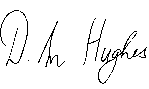 D. M Hughes